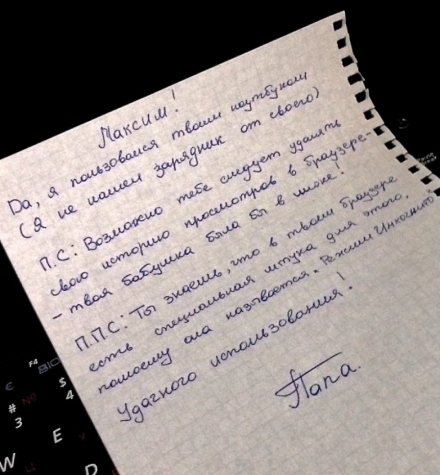 Максим!
Да, я пользовался твоим ноутбуком
(Я не нашел зарядник от своего)
П.С: Возможно тебе следует удалять
свою историю просмотров в браузере-
- твоя бабушка была бы в шоке!
П.П.С: Ты знаешь, что в твоем браузере
есть специальная штука для этого,
помоему она называется. Режим Инкогнито
Удачного использования!
Папа.
F4
BIO
€
$
4
#
3
№
E
W
Ц
D